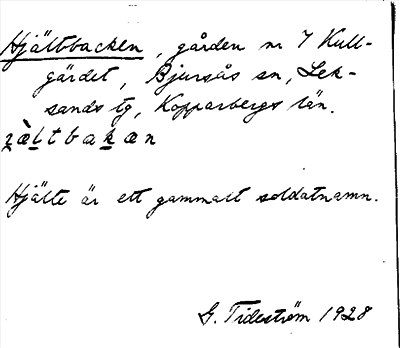 Hjältbacken, gården nr 7 Kull-
gärdet, Bjursås sn, Lek-
sands tg, Kopparbergs län.
zàltbakan
Hjälte är ett gammalt soldatnamn.
G. Tideström 1928